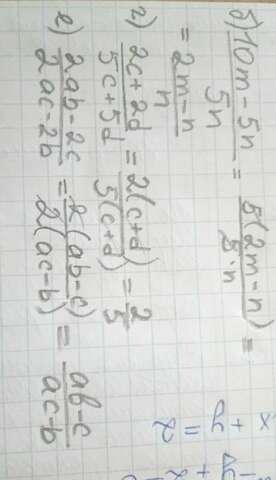 б) (10m-5n)/5n = 5(2m-n)/5·n =
= (2m-n)/n
г) (2c+2d)/(5c+5d) = 2(c+d)/5(c+d) = 2/5
е) (2ab-2c)/(2ac-2b) = 2(ab-c)/2(ac-b) = (ab-c)/(ac-b)
x + y = 2